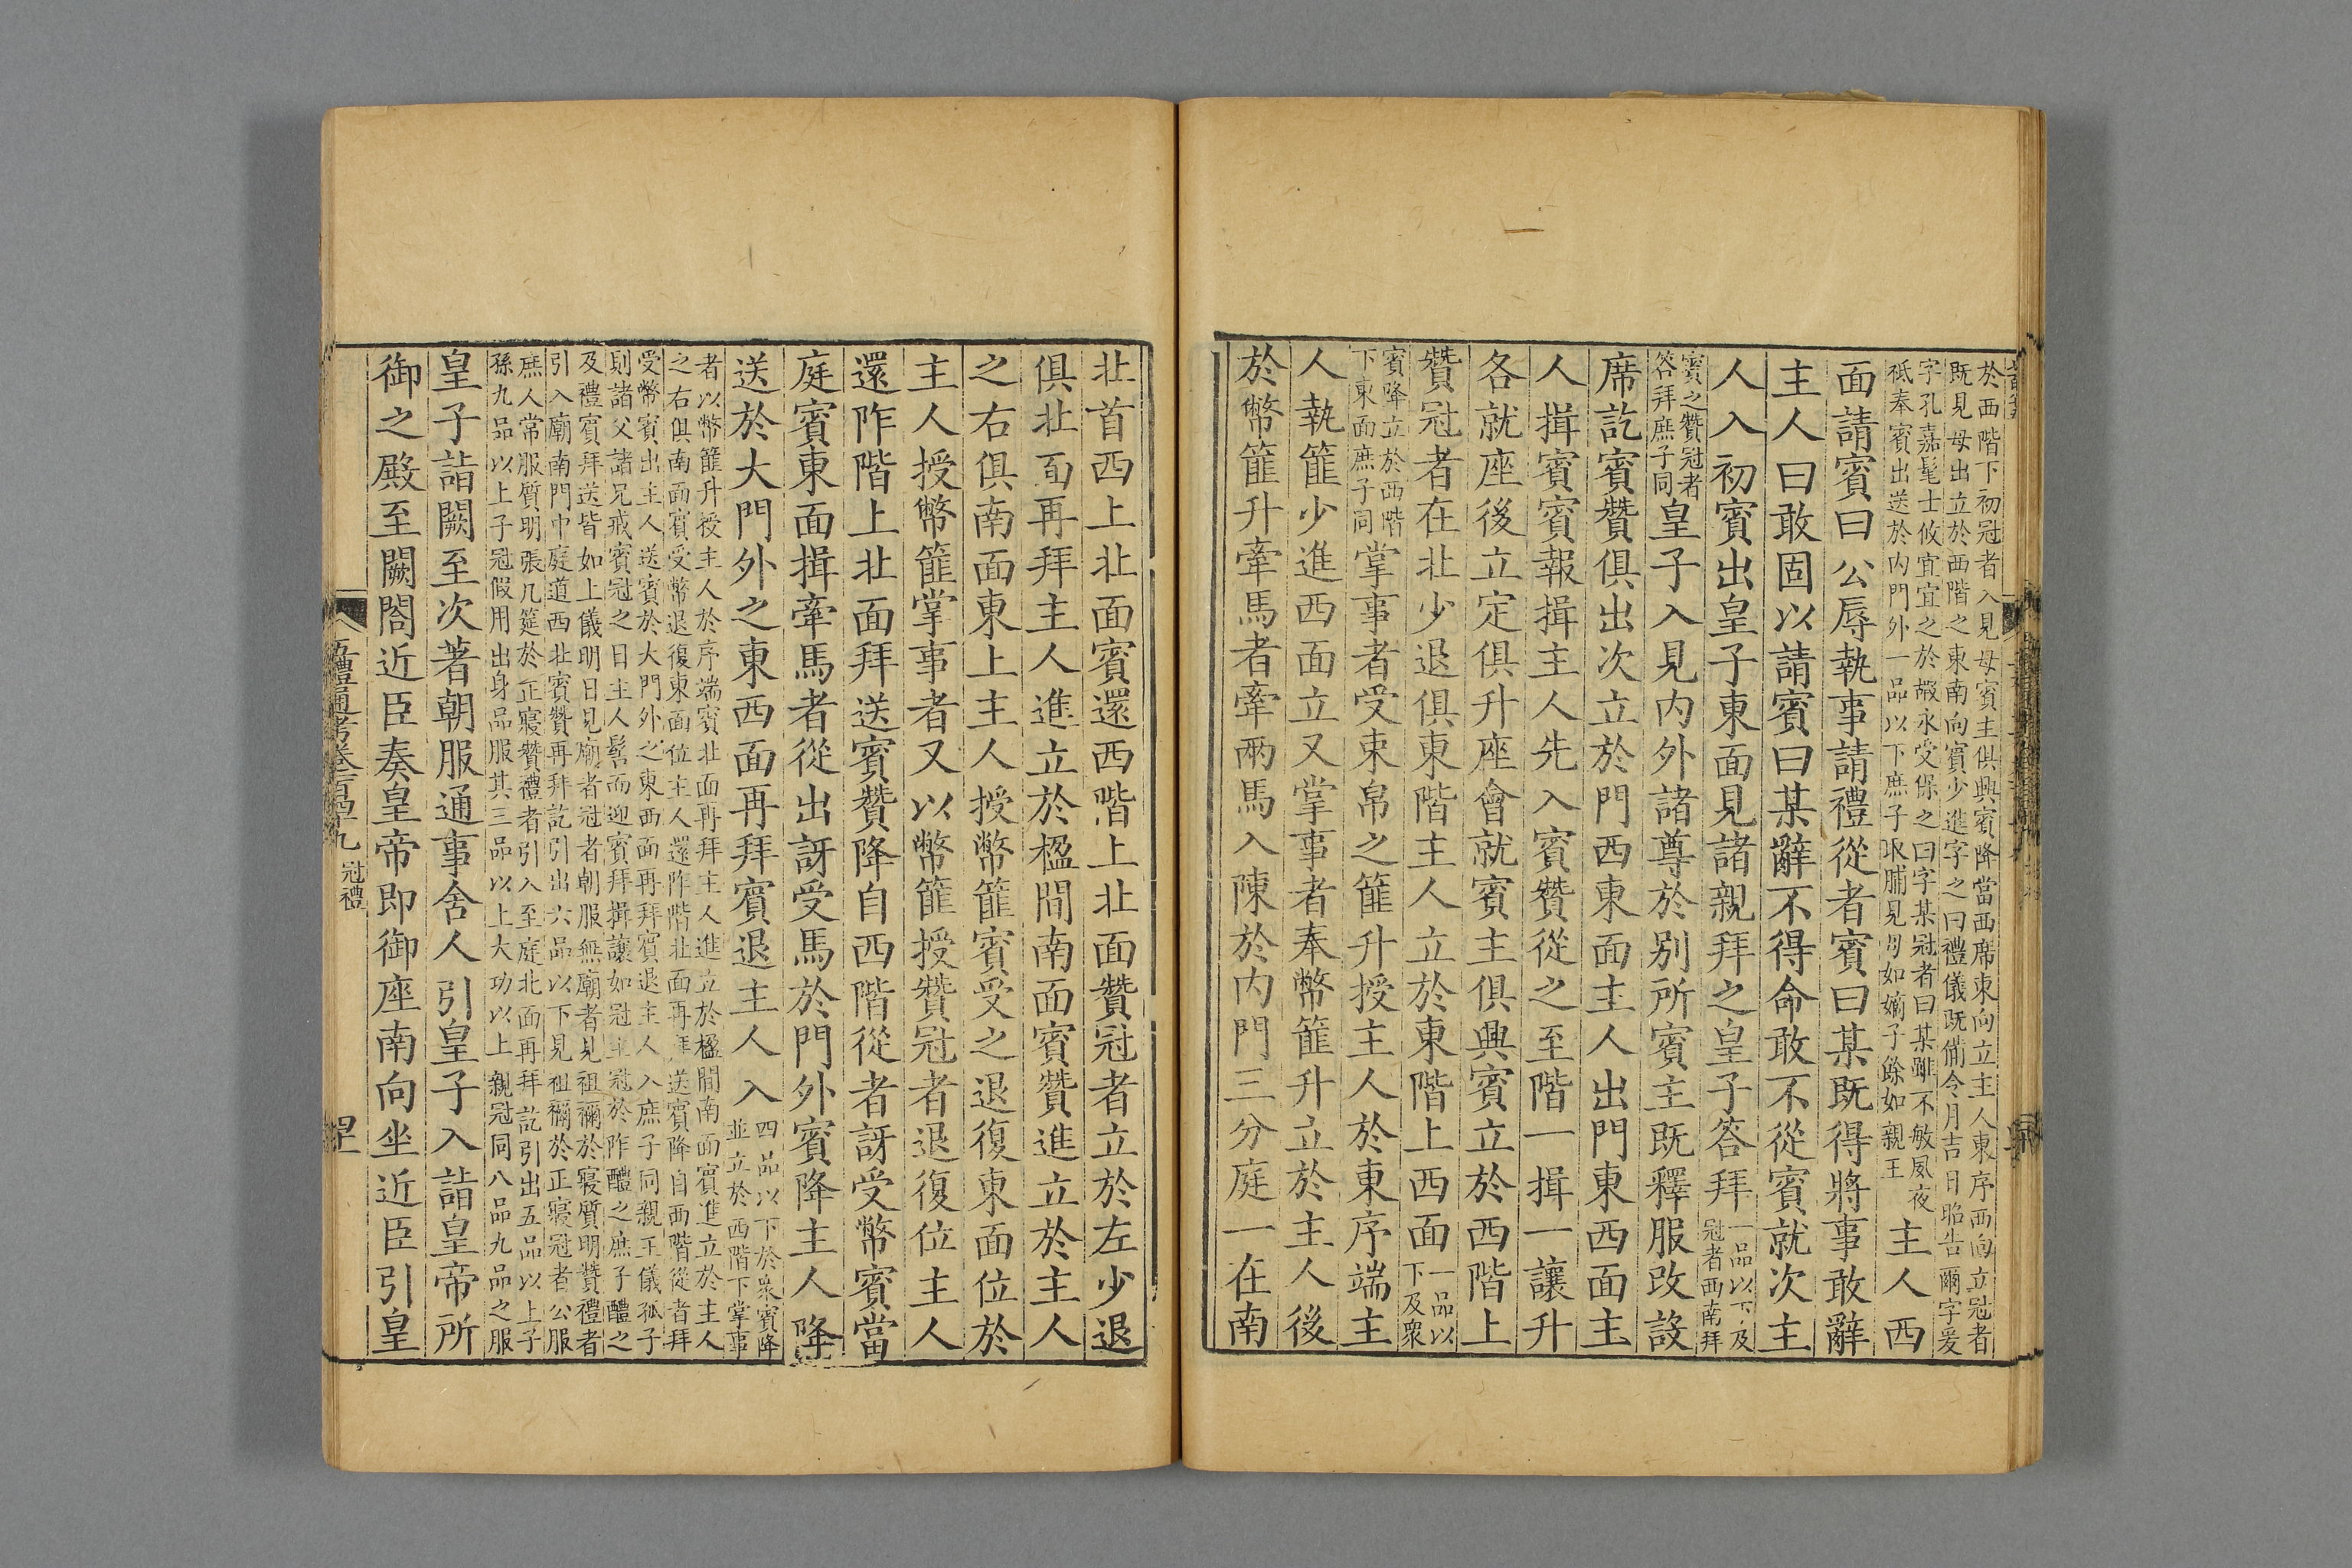 於西階下初冠者入見母賓主俱興賓降當西席東向立主人東序西向立冠者
既見母出立於西階之東南向賓少進字之曰禮儀既備令月吉日昭告爾字爰
字孔嘉髦士攸宜宜之於嘏永受保之曰字某冠者曰某雖不敏夙夜
祗奉賓出送於内門外一品以下庶子取脯見母如嫡子餘如親王
主人西
面請賓曰公辱執事請禮從者賓曰某既得將事敢辭
主人曰敢固以請賓曰某辭不得命敢不從賓就次主
人入初賓出皇子東面見諸親拜之皇子答拜
一品以下及
冠者西南拜
賓之贊冠者
答拜庶子同
皇子入見内外諸尊於别所賓主既釋服改設
席訖賓贊俱出次立於門西東面主人出門東西面主
人揖賓賓報揖主人先入賓贊從之至階一揖一讓升
各就座後立定俱升座會就賓主俱興賓立於西階上
贊冠者在北少退俱東階主人立於東階上西面
一品以
下及衆
賓降立於西階
下東面庶子同
掌事者受束帛之篚升授主人於東序端主
人執篚少進西面立又掌事者奉幣篚升立於主人後
於幣篚升牽馬者牽兩馬入陳於内門三分庭一在南
北首西上北面賓還西階上北面贊冠者立於左少退
俱北面再拜主人進立於楹間南面賓贊進立於主人
之右俱南面東上主人授幣篚賓受之退復東面位於
主人授幣篚掌事者又以幣篚授贊冠者退復位主人
還阼階上北面拜送賓贊降自西階從者訝受幣賓當
庭賓東面揖牽馬者從出訝受馬於門外賓降主人降
送於大門外之東西面再拜賓退主人入
四品以下於衆賓降
並立於西階下掌事
者以幣篚升授主人於序端賓北面再拜主人進立於楹間南面賓進立於主人
之右俱南面賓受幣退復東面位主人還阼階北面再拜送賓降自西階從者拜
受幣賓出主人送賓於大門外之東西面再拜賓退主人入庶子同親王儀孤子
則諸父諸兄戒賓冠之日主人髻而迎賓拜揖讓如冠主冠於阼醴之庶子醴之
及禮賓拜送皆如上儀明日見廟者冠者朝服無廟者見祖禰於寢質明贊禮者
引入廟南門中庭道西北賓贊再拜訖引出六品以下見祖禰於正寢冠者公服
庶人常服質明張几筵於正寢贊禮者引入至庭北面再拜訖引出五品以上子
孫九品以上子冠假用出身品服其三品以上大功以上親冠同八品九品之服
皇子詣闕至次著朝服通事舍人引皇子入詣皇帝所
御之殿至闕閤近臣奏皇帝即御座南向坐近臣引皇
五禮通考卷一百四十九 冠禮